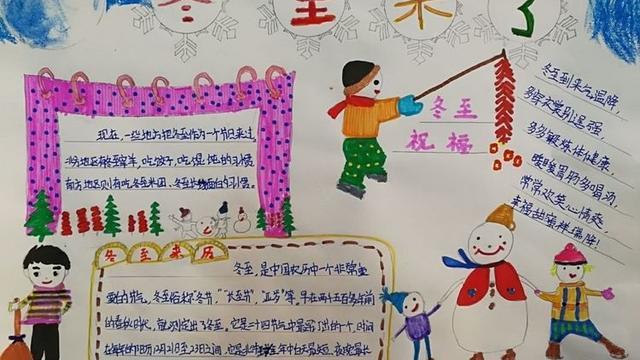 冬至来了
现在,一些地方把冬至作为一个节日来过。
北方地区有冬至宰羊,吃饺子,吃馄饨的习俗,
南方地区则有吃冬至米团、冬至长线面的习惯。
冬至
祝福
冬至到来气温降,
多穿衣裳别逞强
多多锻炼体健康,
暖暖胃肠多喝汤,
常常欢笑心情爽,
幸福吉祥福降!
冬至来历
冬至,是中国农历中一个非常重
要的节气,冬至俗称"冬节","长至节","亚岁"等,早在两千五百多年前
的春秋时代,就测定出了冬至,它是二十四节气中最早订出的一个,时间
在每年的阳历12月21日至23日之间,它是北半球全年中白天最短、夜晚最长